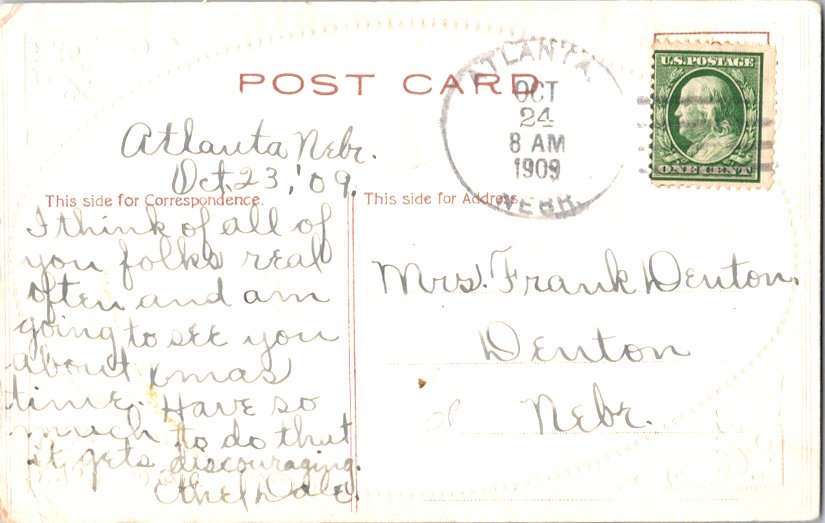 POST CARD
ATLANTA
OCT
24
8 AM
1909
NEBR.
U.S. POSTAGE
ONE CENT
Atlanta Nebr.
Oct. 23, '09.
This side for Correspondence.
I think of all of
you folks real
often and am
going to see you
about Xmas
time. Have so
much to do that
it gets discouraging.
Ethel Dale.
This side for Address.
Mrs. Frank Denton,
Denton
Nebr.